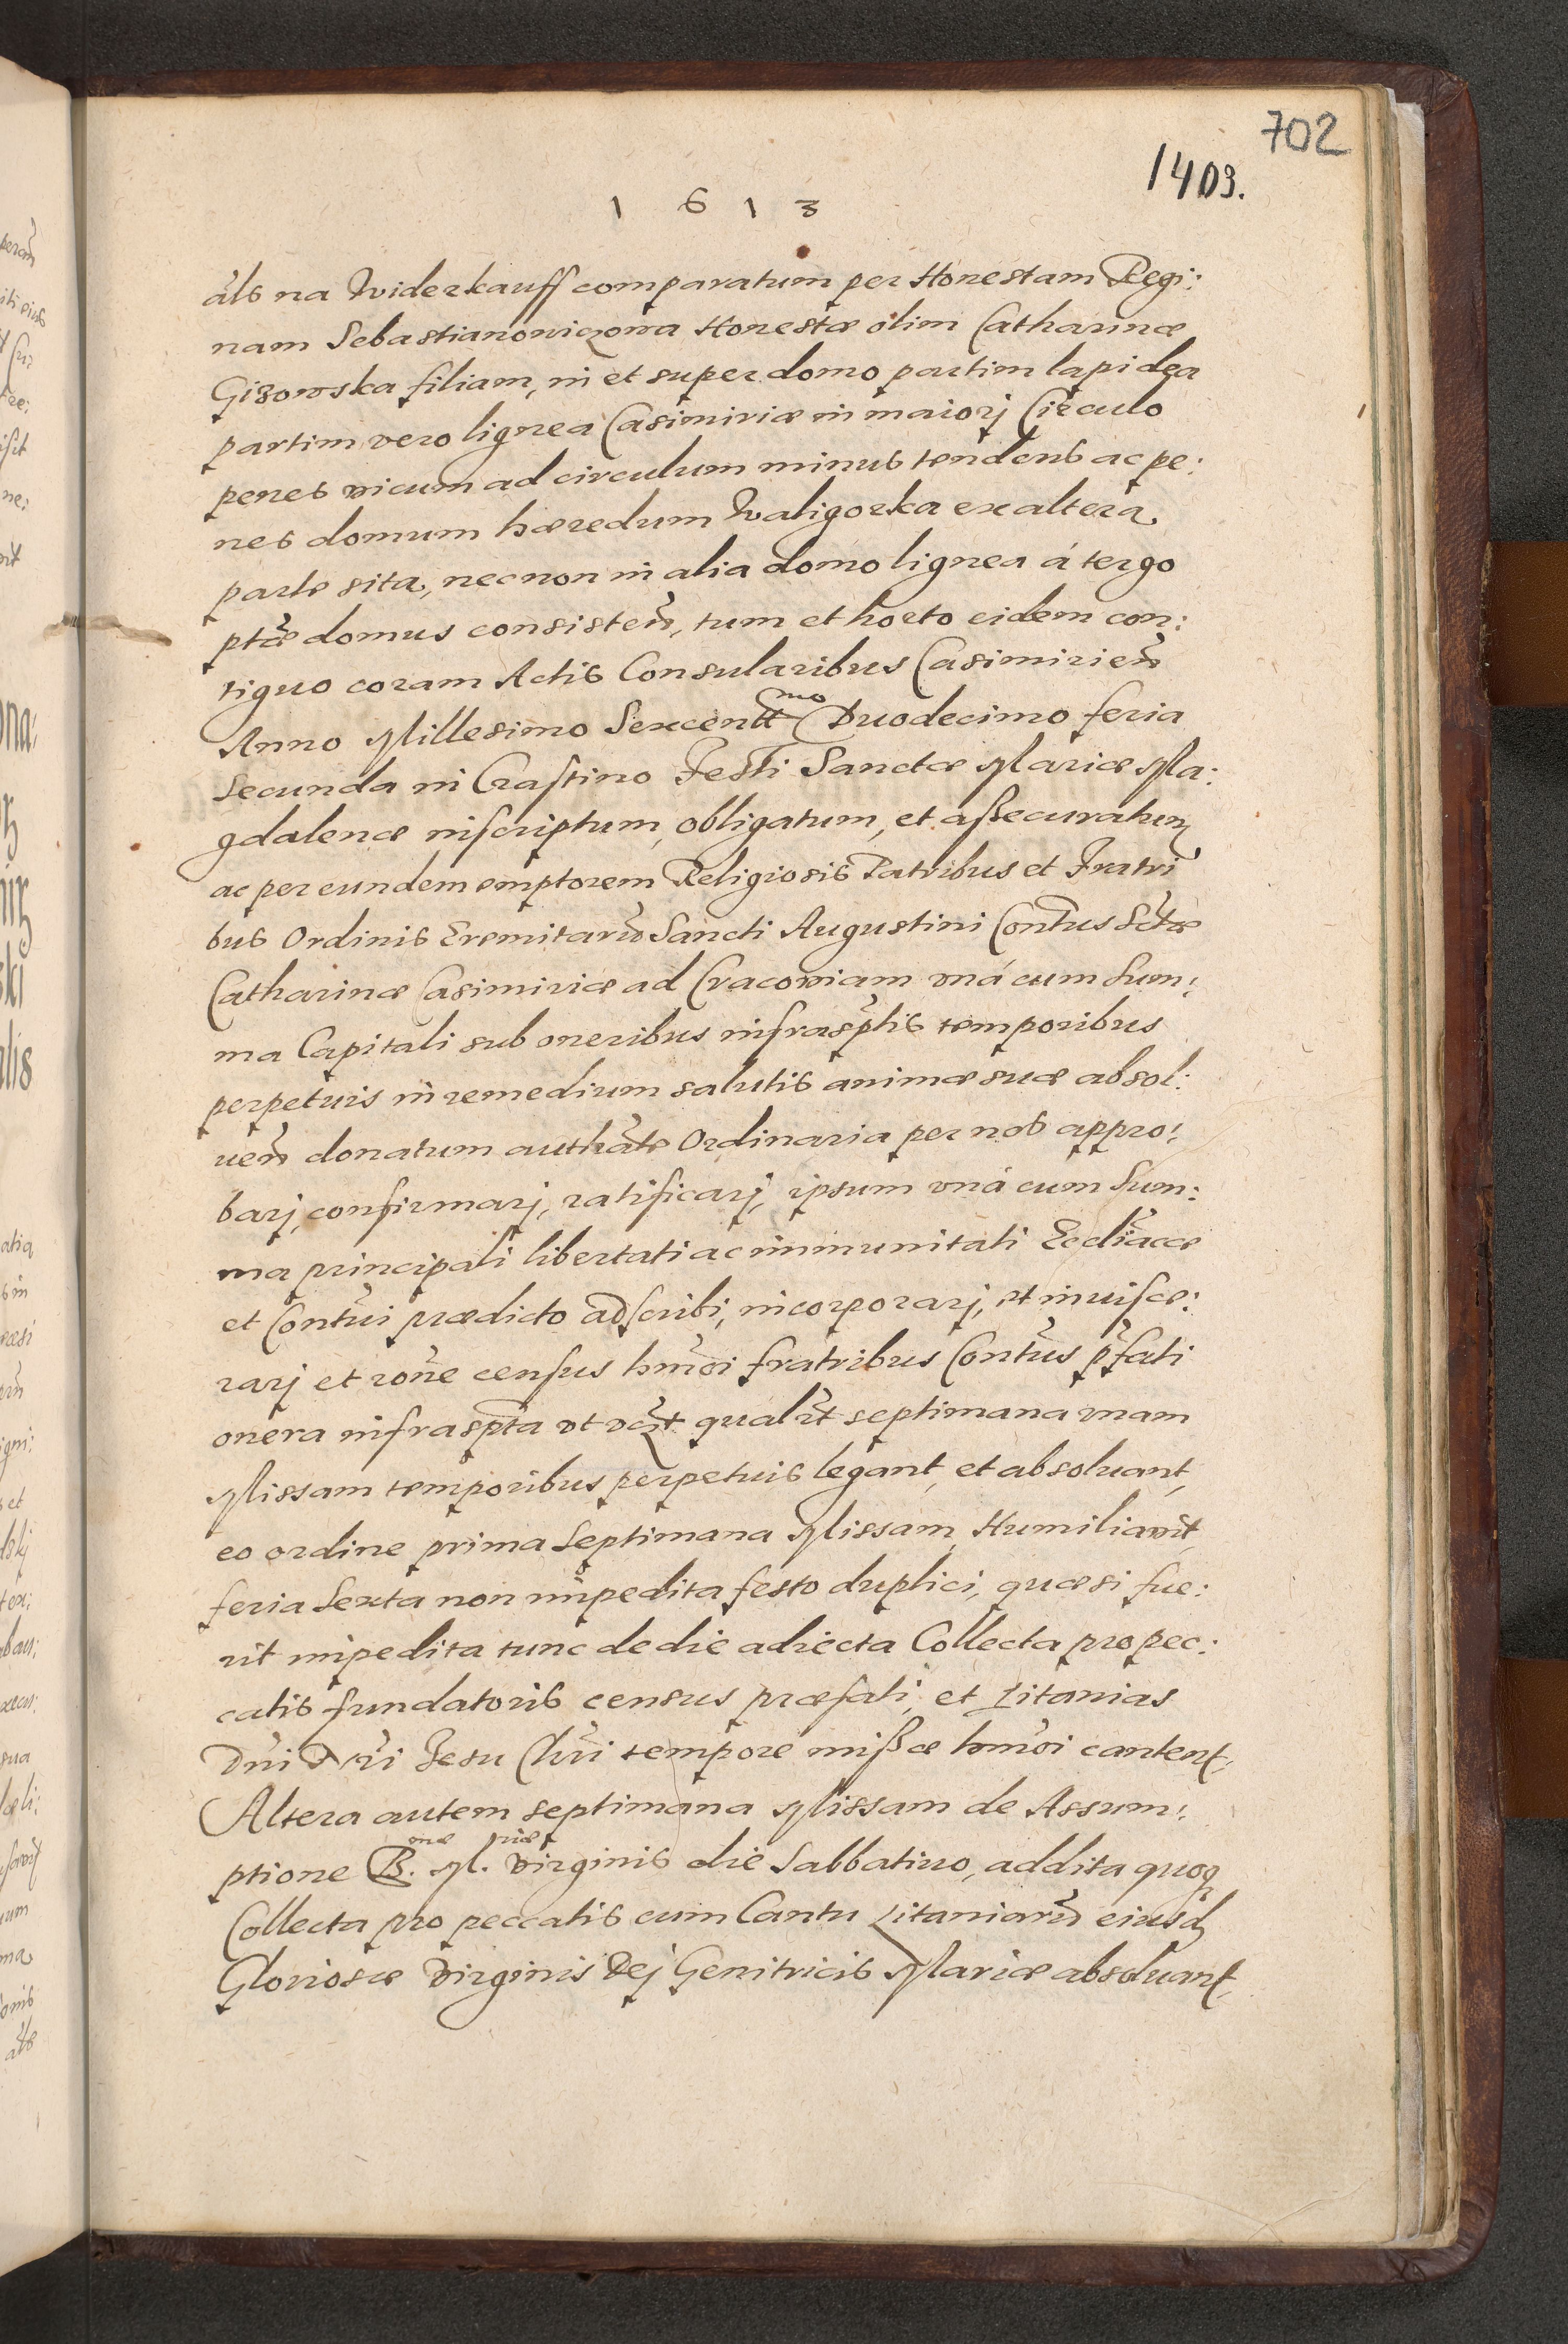 702
1409.
1 6 1 3
als na Widerkauff comparatum per Honestam Regi:
nam Sebastianowiczowa Honestæ olim Catharinæ
Gizowska filiam, in et super domo partim lapidea
partim vero lignea Casimiriæ in maiorj Circulo
penes vicum ad circulum minus tendens ac pe:
nes domum hæredum Waligorka ex altera
parte sita, necnon in alia domo lignea á tergo
ptæ domus consisteñ, tum et horto eidem con:
tiguo coram Actis Consularibus Casimirieñ
Anno Millesimo Sexcentt mo Duodecimo feria
Secunda in Crastino Festi Sanctæ Mariæ Ma:
gdalenæ inscriptum, obligatum, et aßecuratum
ac per eundem emptorem Religiosis Patribus et Fratri
bus Ordinis Eremitarũ Sancti Augustini Contus Sctæ
Catharinæ Casimiriæ ad Cracoviam vná cum Sum:
ma Capitali sub oneribus infrasptis temporibus
perpetuis in remedium salutis animæ suæ absol:
ueñ donatum authate Ordinaria per nos appro:
barj, confirmarj, ratificarj, ipsum vná cum Sum:
ma principali libertati ac immunitati Eccliacæ
et Contui prædicto adscribi, incorporarj, et inuisce:
rarj et rone census hmoi fratribus Contus pfati
onera infraspta vt vcz qualt septimana vnam
Missam temporibus perpetuis legant, et absoluant,
eo ordine prima Septimana Missam, Humiliavit,
feria Sexta non impedita festo duplici, quæ si fue:
rit impedita tunc de die adiecta Collecta pro pec:
catis fundatoris census præfati, et Litanias
Dni Nri Jesu Chri tempore mißæ hmoi cantent,
Altera autem septimana Missam de Assum:
ptione B. mæ M. riæ Virginis die Sabbatino, addita quoq
Collecta pro peccatis cum Cantu Litaniarũ eiusd
Gloriosæ Virginis Dej Genitricis Mariæ absoluant,